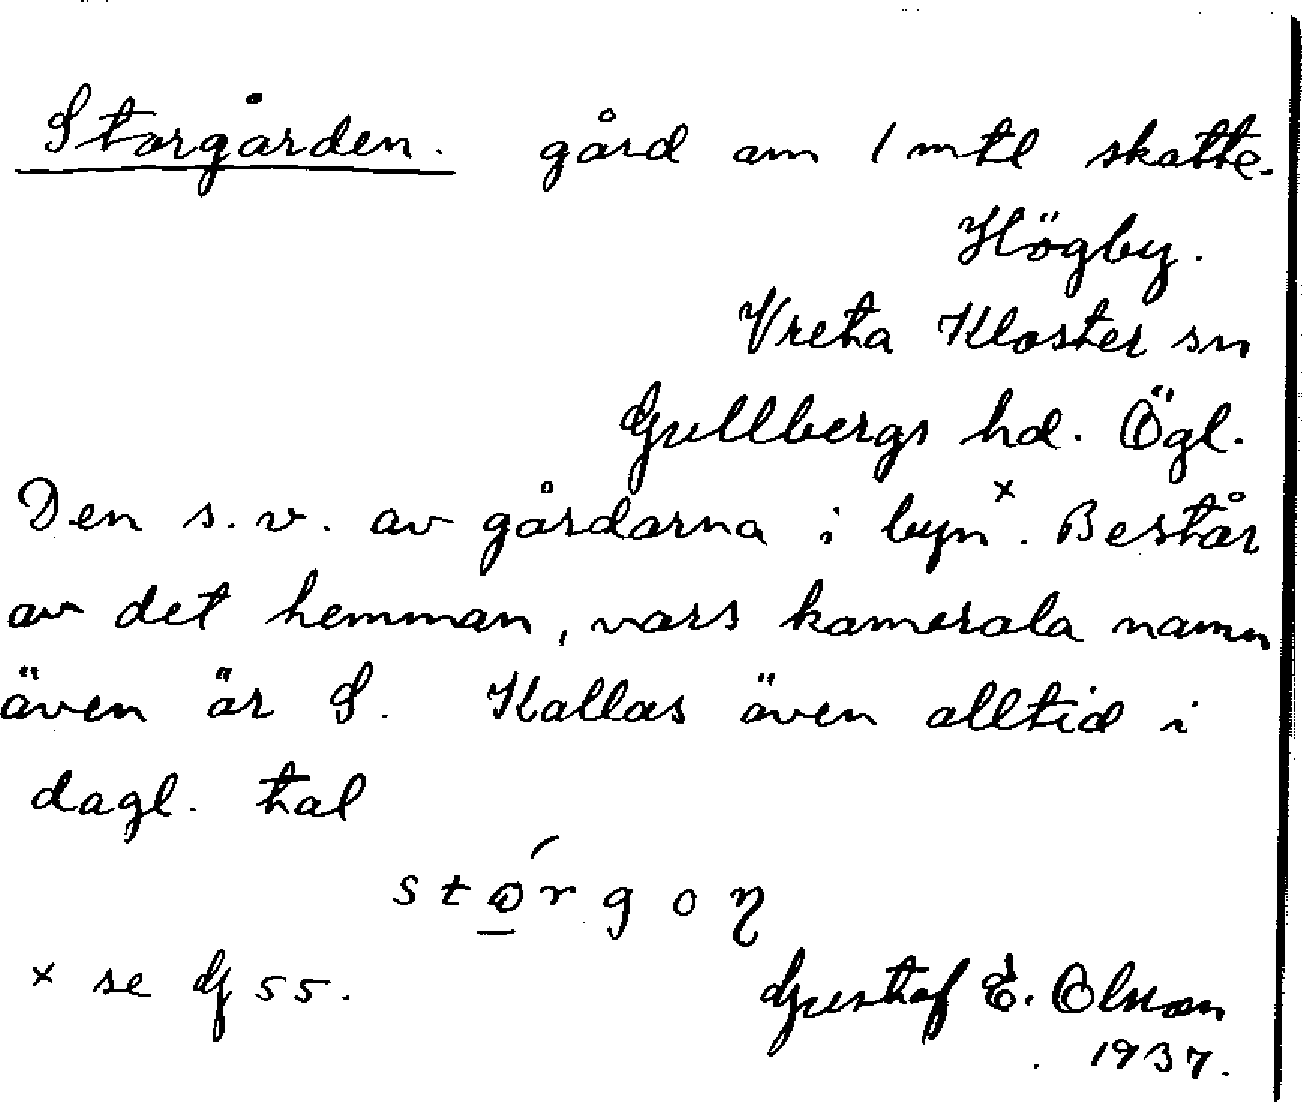 Storgården. gård om 1 mtl skatte.
Högby.
Vreta Kloster sn
Gullbergs hd. Ögl.
Den s.v. av gårdarna i byn x. Består
av det hemman, vars kamerala namn
även är S. Kallas även alltid i
dagl. tal
stǫ́rgoņ
x se G 55.
Gustaf E. Olsson
1937.